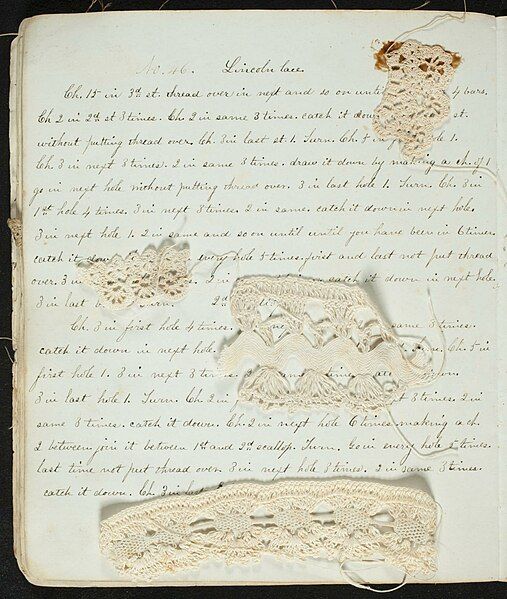 No. 46. Lincoln lace
Ch. 15 in 3rd st. thread over in next and so on until 4 bars.
Ch 2 in 2nd st 3 times. Ch. 2 in same 3 times. catch it down st.
without putting thread over. Ch. 3 in last st. 1. Turn. Ch. 5 in 1.
Ch. 3 in next 3 times. 2 in same 3 times. draw it down by making a ch. of 1
go in next hole without putting thread over. 3 in last hole 1. Turn. Ch. 3 in
1st hole 4 times. 3 in next 3 times. 2 in same. catch it down in next hole.
3 in next hole 1. 2 in same and so on until until you have been in 6 times.
catch it every hole 5 times. first and last not put thread
over. 3 in 2 in catch it down in next hole.
3 in last Turn. 2nd
Ch. 3 in first hole 4 times. same 3 times.
catch it down in next hole. Ch. 5 in
first hole 1. 3 in next 3 times.
3 in last hole 1. Turn. Ch. 2 in 3 times. 2 in
same 3 times. catch it down. Ch. 2 in next hole 6 times making a ch.
2 between join it between 1st and 2nd scallop. Turn. Go in every hole 5 times.
last time not put thread over. 3 in next hole 3 times. 2 in same 3 times.
catch it down. Ch. 3 in last